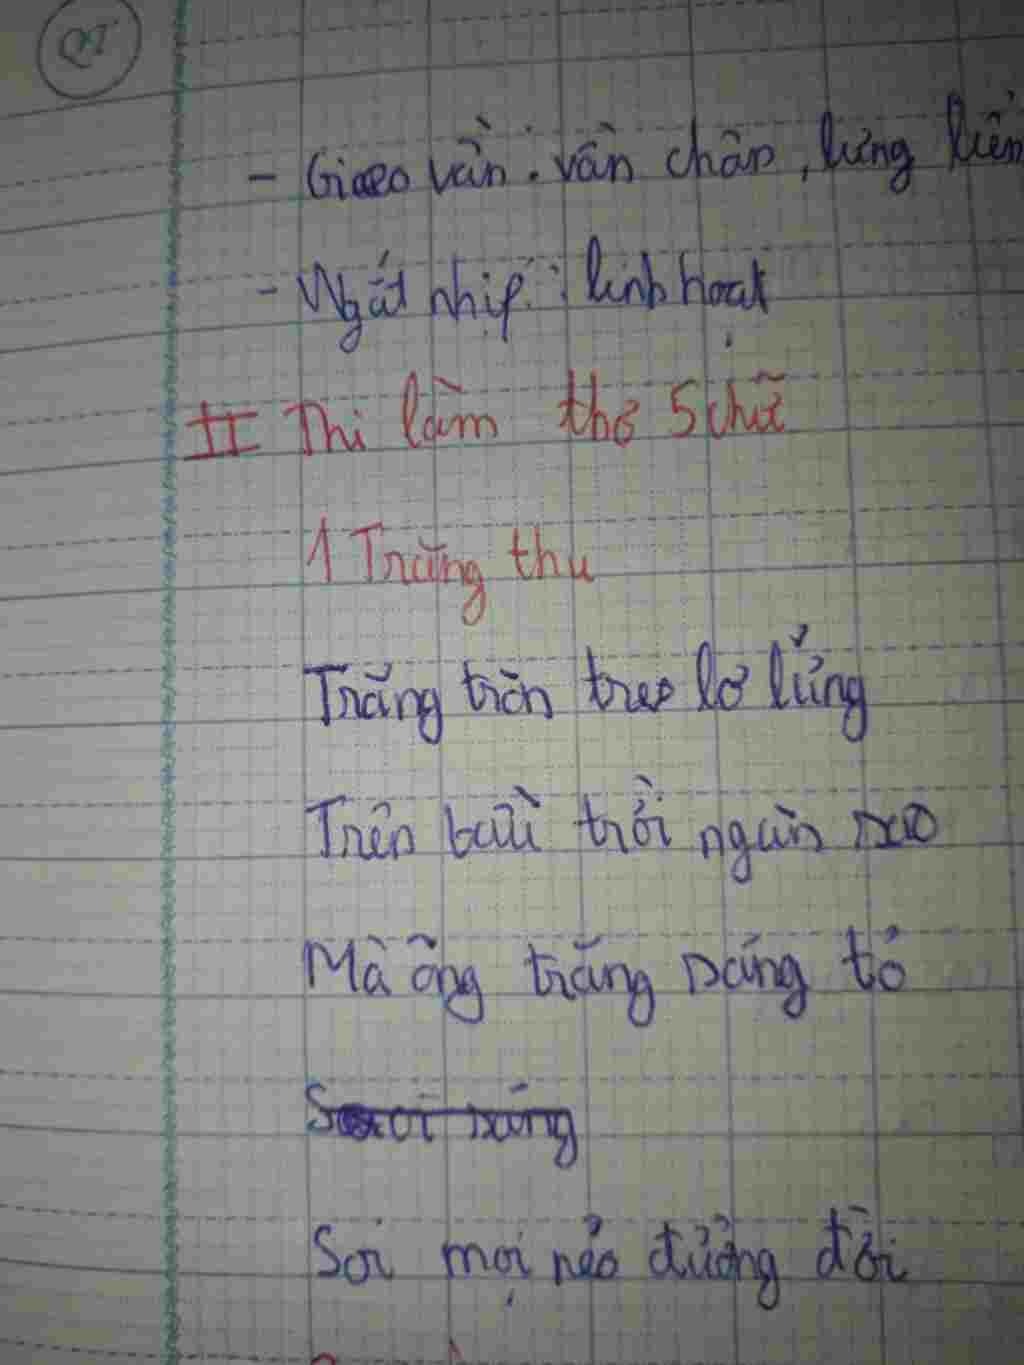 - Gieo vần : vần chân, lưng liền
- Ngắt nhịp : linh hoạt
II Thi làm thơ 5 chữ
1 Trăng thu
Trăng tròn treo lơ lửng
Trên bầu trời ngàn sao
Mà ông trăng sáng tỏ
Soi sáng
Soi mọi nẻo đường đời